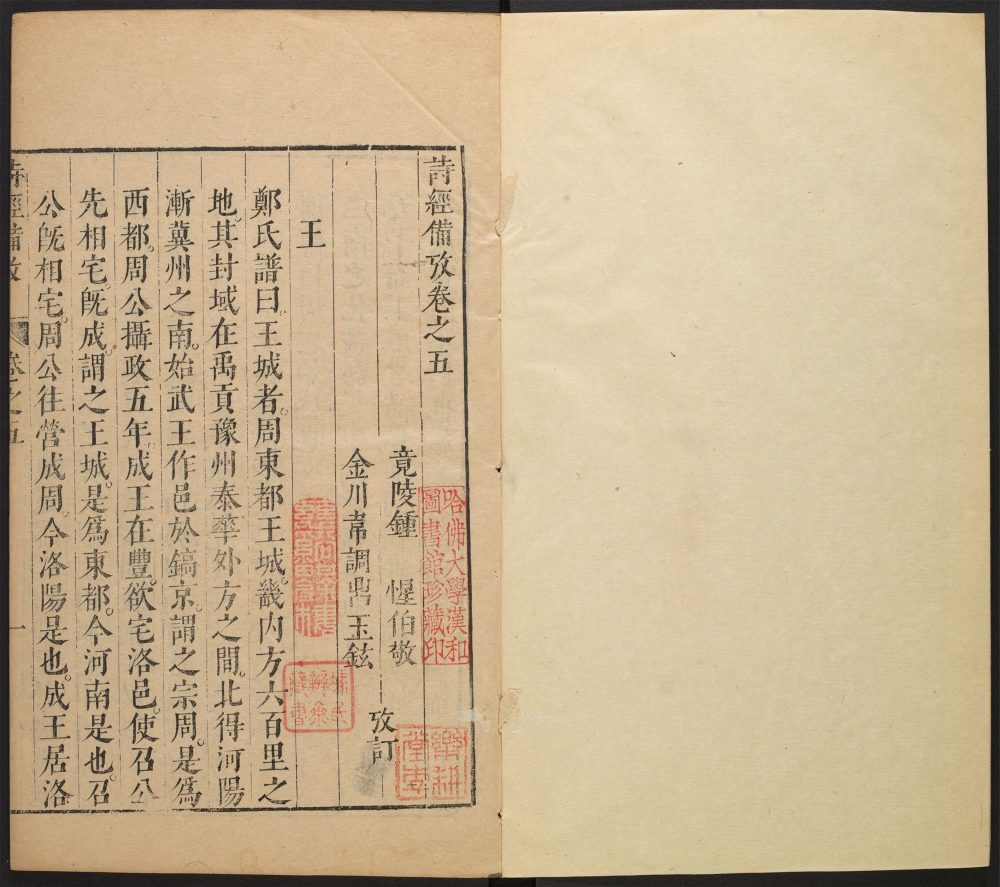 詩經備攷卷之五
竟陵鍾　惺伯敬
金川韋調鼎玉鉉
攷訂
王
鄭氏譜曰。王城者。周東都王城。畿内方六百里之
地。其封域在禹貢豫州泰華外方之間。北得河陽
漸冀州之南。始武王作邑於鎬京。謂之宗周。是爲
西都。周公攝政五年。成王在豐。欲宅洛邑。使召公
先相宅。旣成。謂之王城。是爲東都。今河南是也。召
公旣相宅。周公往營成周今洛陽是也。成王居洛
詩經備攷
卷之五
一
哈佛大學漢和
圖書館珍藏印